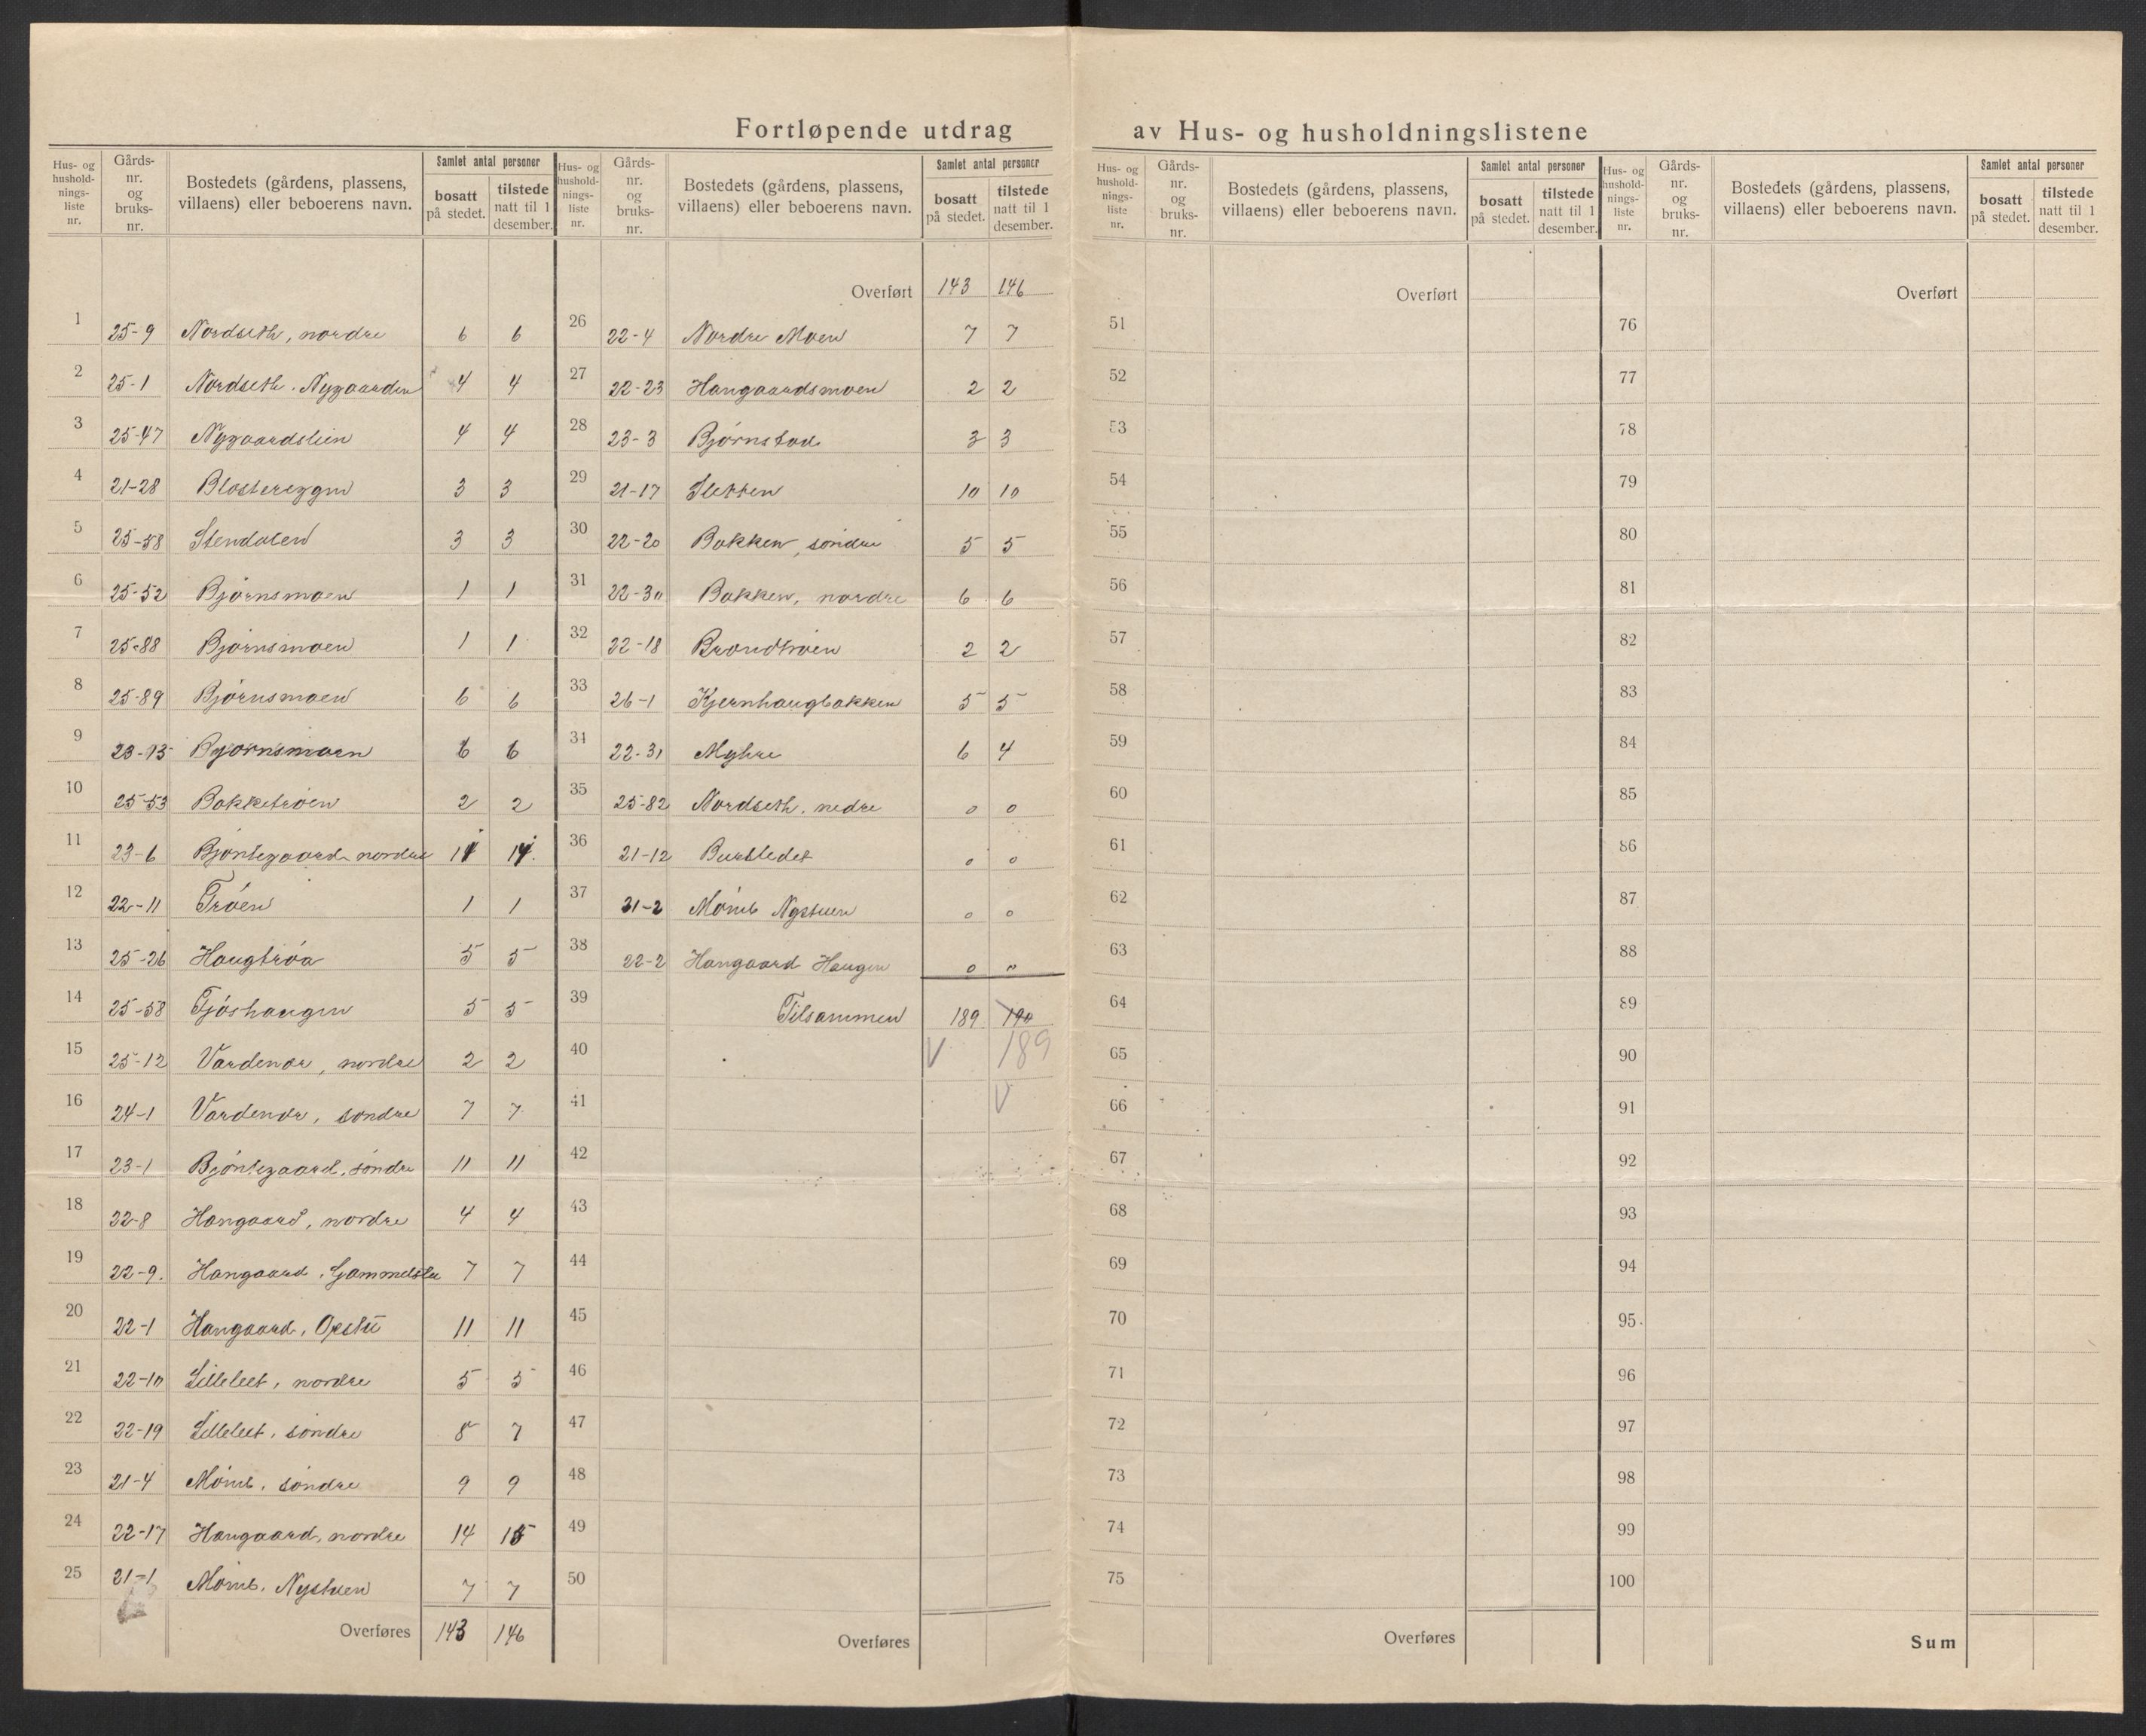 Fortløpende utdrag av Hus- og husholdningslistene
Hus- og hushold-nings-liste nr. Gårds-nr. og bruks-nr. Bostedets (gårdens, plassens, villaens) eller beboerens navn. Samlet antal personer bosatt på stedet. tilstede natt til 1 desember.
1 25-9 Nordseth, nordre 6 6
2 25-1 Nordseth. Nygaarden 4 4
3 25-47 Nygaardslien 4 4
4 21-28 3 3
5 25-58 Stendalen 3 3
6 25-52 Bjørnsmoen 1 1
7 25-88 Bjørnsmoen 1 1
8 25-89 Bjørnsmoen 6 6
9 23-13 Bjørnsmoen 6 6
10 25-53 Bakketrøen 2 2
11 23-6 Bjøntegaard nordre
12 22-11 Trøen 1 1
13 25-26 Haugtrøa 5 5
14 25-58 Fjøshaugen 5 5
15 25-12 Vardenær, nordre 2 2
16 24-1 Vardenær, søndre 7 7
17 23-1 Bjøntegaard, søndre 11 11
18 22-8 Hangaard, nordre 4 4
19 22-9. Hangaard, Gammelstu 7 7
20 22-1 Hangaard, Opstu 11 11
21 22-10 Lilleleet, nordre 5 5
22 22-19 Lilleleet, søndre 8 7
23 21-4 Momb, søndre 9 9
24 22-17 Hangaard, nordre 14 15
25 21-1 Momb, Nystuen 7 7
Overføres 143 146
Hus- og hushold-nings-liste nr. Gårds-nr. og bruks-nr. Bostedets (gårdens, plassens, villaens) eller beboerens navn. Samlet antal personer bosatt på stedet. tilstede natt til 1 desember.
Overført 143 146
26 22-4 Nordre Moen 7 7
27 22-23 Hangaardsmoen 2 2
28 23-3 Bjørnstad 3 3
29 21-17 Sletten 10 10
30 22-20 Bakken, søndre 5 5
31 22-30 Bakken, nordre 6 6
32 22-18 Brandtrøen 2 2
33 26-1 Kjernhaugbakken 5 5
34 22-31 Myhre 6 4
35 25-82 Nordseth, nedre 0 0
36 21-12 0 0
37 21-2 Momb Nystuen 0 0
38 22-2 Hangaard Haugen 0 "
39 Tilsammen 189 190
40 V 189
41 V
42
43
44
45
46
47
48
49
50
Overføres
Hus- og hushold-nings-liste nr. Gårds-nr. og bruks-nr. Bostedets (gårdens, plassens, villaens) eller beboerens navn. Samlet antal personer bosatt på stedet. tilstede natt til 1 desember.
Overført
51
52
53
54
55
56
57
58
59
60
61
62
63
64
65
66
67
68
69
70
71
72
73
74
75
Overføres
Hus- og hushold-nings-liste nr. Gårds-nr. og bruks-nr. Bostedets (gårdens, plassens, villaens) eller beboerens navn. Samlet antal personer bosatt på stedet. tilstede natt til 1 desember.
Overført
76
77
78
79
80
81
82
83
84
85
86
87
88
89
90
91
92
93
94
95
96
97
98
99
100
Sum